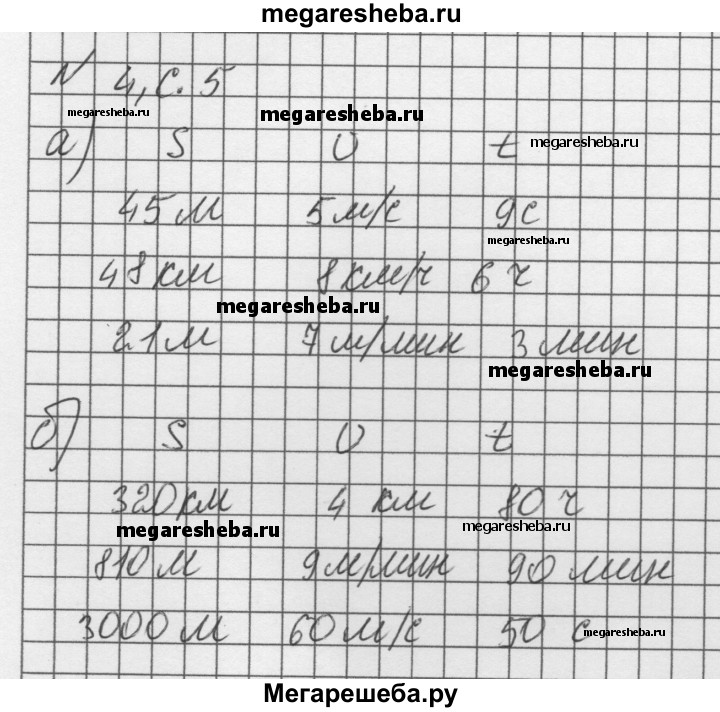 megaresheba.ru
N 4, с. 5
megaresheba.ru megaresheba.ru
а) S U t megaresheba.ru
45 м 5 м/с 9 с
megaresheba.ru
48 км 8 км/ч 6 ч
megaresheba.ru
21 м 7 м/мин 3 мин
megaresheba.ru
б) S U t
320 км 4 км 80 ч
megaresheba.ru megaresheba.ru
810 м 9 м/мин 90 мин
3000 м 60 м/с 50 с megaresheba.ru
Мегарешеба.ру